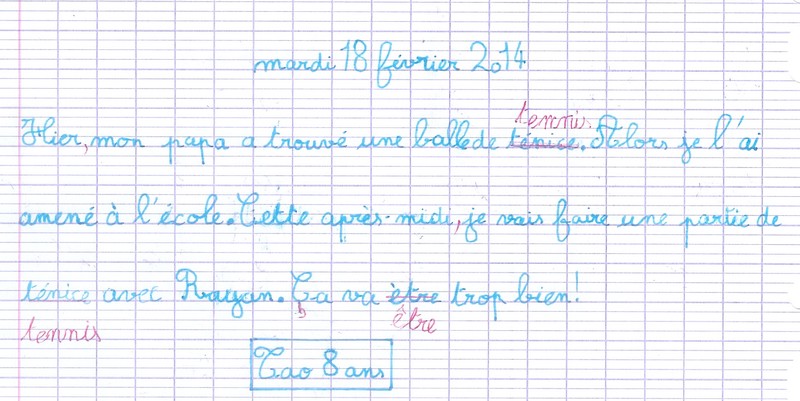 mardi 18 février 2014
tennis.
Hier, mon papa a trouvé une balle de ténice. Alors je l'ai
amené à l'école. Cette après-midi, je vais faire une partie de
ténice avec Rayan. Ça va ètre trop bien!
tennis être
Tao 8 ans